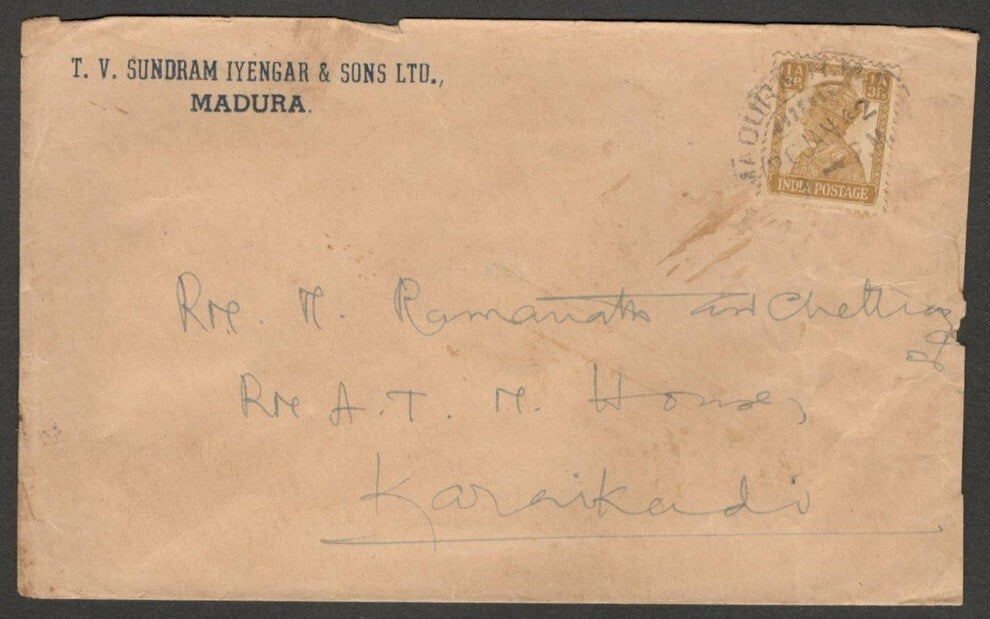 T. V. SUNDRAM IYENGAR & SONS LTD.,
MADURA.
1A 3P 1A 3P
INDIA POSTAGE
MADURA
JAN 42
RM. M. Ramanathan Chettiar
RM A. T. M. House,
Karaikadi